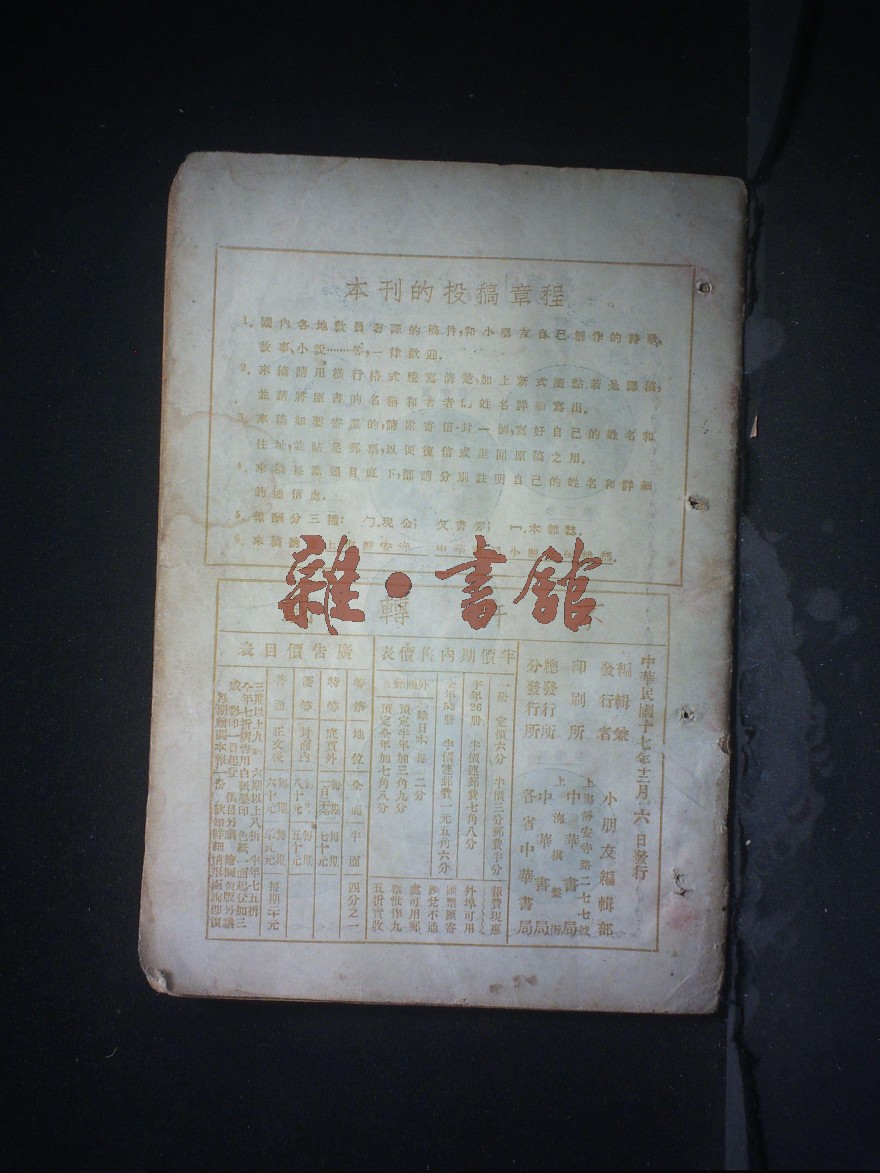 本刊的投稿章程
1. 國內各地教員著譯的稿件,和小朋友自己創作的詩歌,
故事、小說……等,一律歡迎.
2. 來稿請用橫行格式謄寫清楚,加上新式圈點.若是譯稿,
並請將原書的名稱和著者的姓名詳細寫出.
3. 來稿如要寄還的,請附寄信封一個,寫好自己的姓名和
住址,並貼足郵票,以便復信或退回原稿之用.
4. 來稿每篇題目底下,都請分別註明自己的姓名和詳細
的通信處.
5. 報酬分三種: 現金; 書券; 本雜誌.
6. 來稿請 上海靜安寺 中華 小朋
雜·書館
轉
中華民國十七年十二月 六日發行
編輯兼
發行者
小朋友編輯部
印刷所
上海靜安寺路二七七號
中華書局
總發行所
上海棋盤街
中華書局
分發行所
各省中華書局
半價期內售價表
一册 定價六分 半價三分郵費半分
半年26册 半價連郵費七角八分
全年52册 半價連郵費一元五角六分
外國郵
除日本 每 二分
預定半年加三角九分
預定全年加七角八分
報費現惠
外埠可用
匯票匯寄
匯兌不通
處可用郵
票惟作九
五折實收
廣告價目表
等第 地位 全面 半面 四分之一
特等 底頁外 每期 每期七十元
優等 封面內 每期八十元 每期五十元
普通 正文後 每期六十元 每期 五元 每期二十元